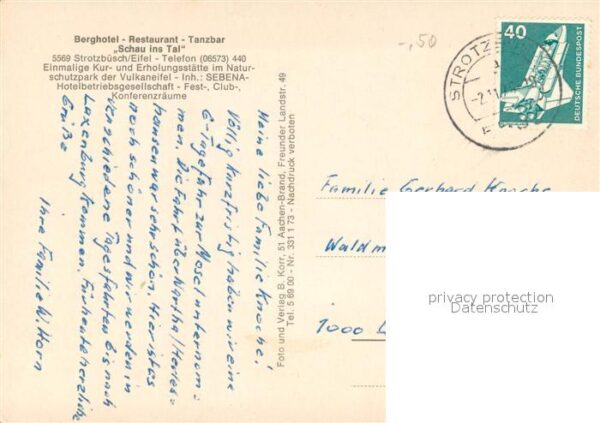 Berghotel - Restaurant - Tanzbar
„Schau ins Tal"
5569 Strotzbüsch/Eifel - Telefon (06573) 440
Einmalige Kur- und Erholungsstätte im Natur-
schutzpark der Vulkaneifel - Inh.: SEBENA-
Hotelbetriebsgesellschaft - Fest-, Club-,
Konferenzräume
-,50
40
DEUTSCHE BUNDESPOST
Meine liebe Familie Knoche!
Völlig kurzfristig haben wir eine
6-Tagefahr zur Mosel unternom-
men. Die Fahrt über
war sehr schön. Hier ist es
noch schöner und wir werden in
verschiedene Tagesfahrten bis nach
Luxemburg kommen. Für heute herzliche
Grüße
Ihre Familie W. Horn
Foto und Verlag B. Korr, 51 Aachen-Brand, Freunder Landstr. 49
Tel. 5 69 00 - Nr. 331 1 73 - Nachdruck verboten
Familie Gerhard Knoche
Waldm
1000
privacy protection
Datenschutz